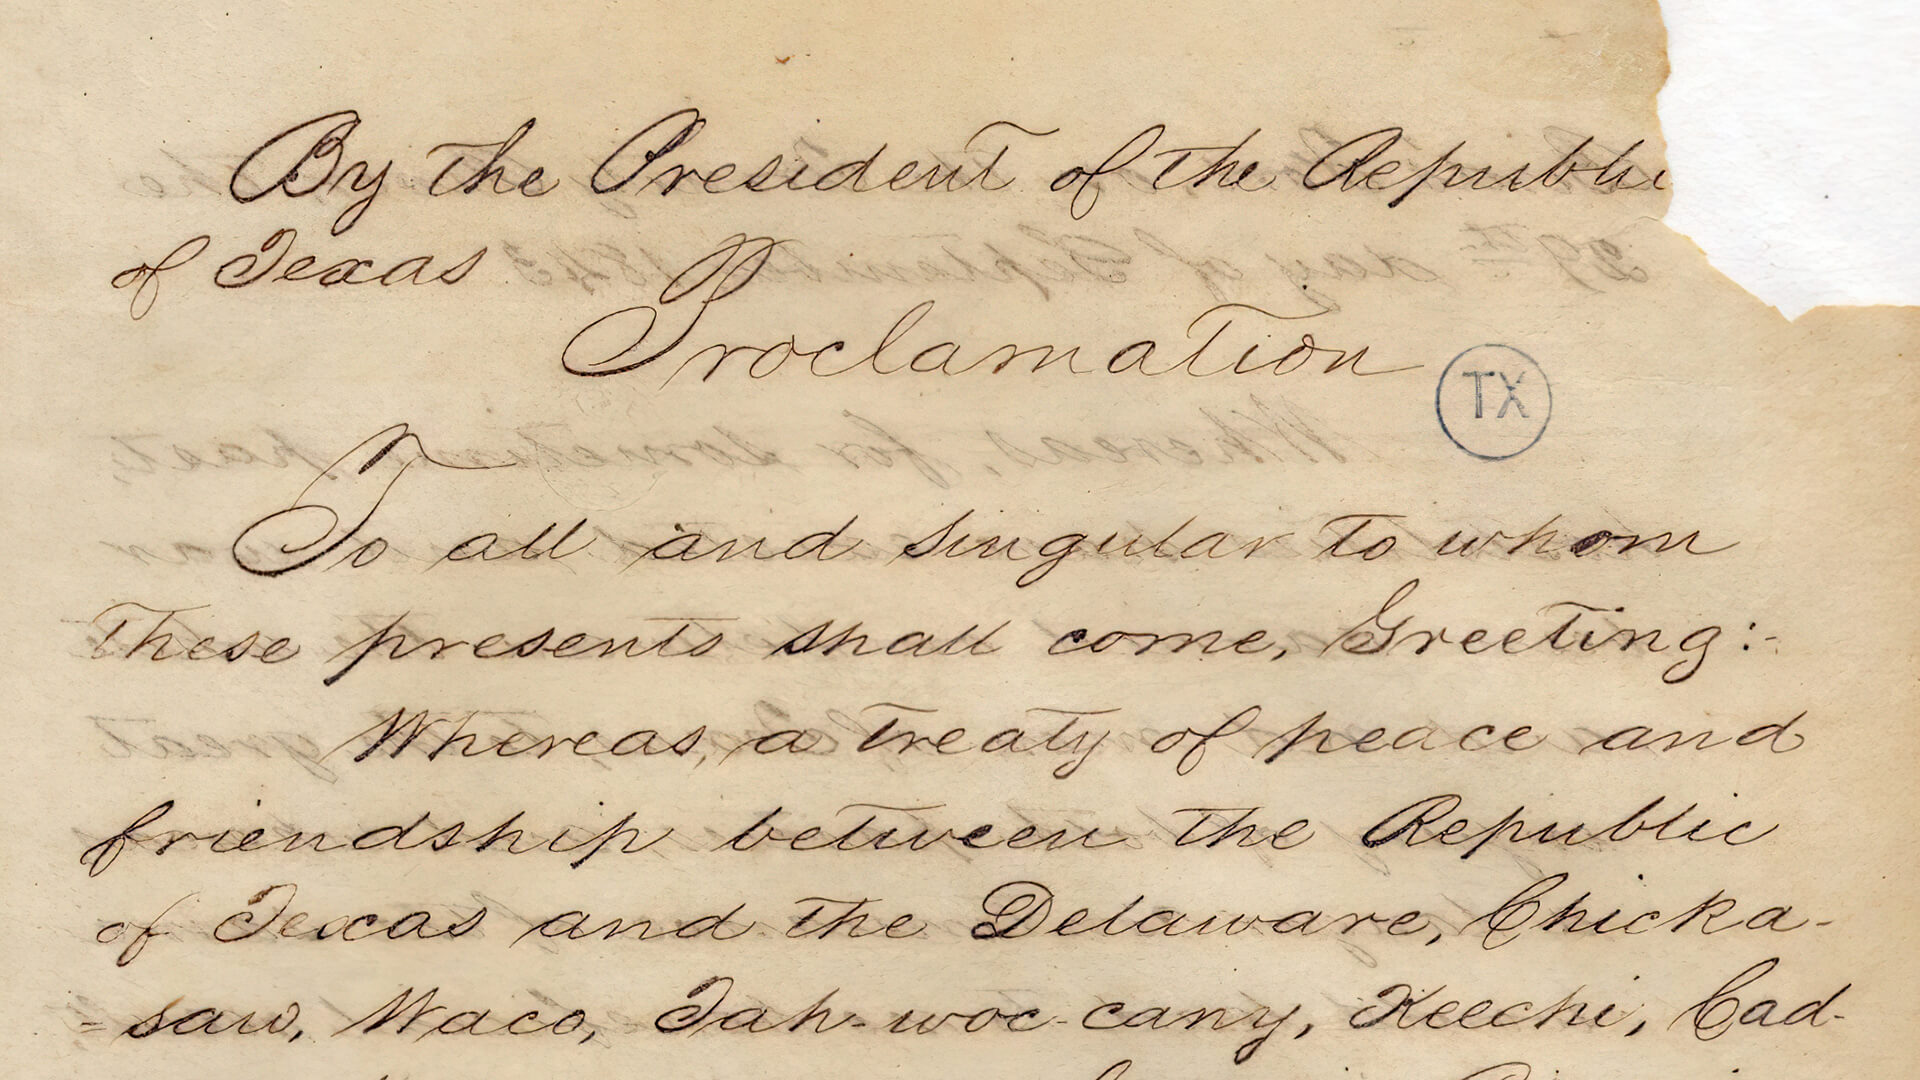 By the President of the Republi
of Texas
Proclamation
TX
To all and singular to whom
these presents shall come, Greeting:-
Whereas, a treaty of peace and
friendship between the Republic
of Texas and the Delaware, Chicka-
-saw, Waco, Tah-woc-cany, Keechi, Cad-